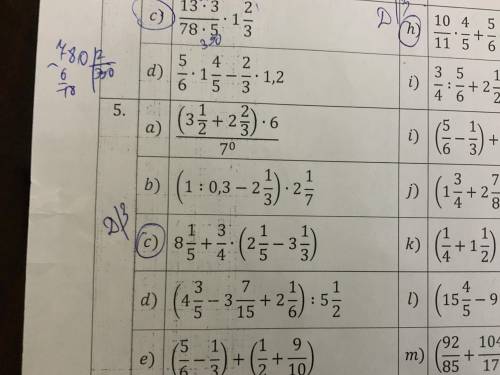 c) (13·3)/(78·5) · 1 2/3
390
Д/з
h) 10/11 · 4/5 + 5/6
780 2
- 6 390
18
d) 5/6 · 1 4/5 − 2/3 · 1,2
i) 3/4 : 5/6 + 2 1/2
5.
a) ((3 1/2 + 2 2/3) · 6)/7⁰
i) (5/6 − 1/3) +
b) (1 : 0,3 − 2 1/3) · 2 1/7
j) (1 3/4 + 2 7/8
Д/з
c) 8 1/5 + 3/4 · (2 1/5 − 3 1/3)
k) (1/4 + 1 1/2)
d) (4 3/5 − 3 7/15 + 2 1/6) : 5 1/2
l) (15 4/5 − 9
e) (5/6 − 1/3) + (1/2 + 9/10)
m) (92/85 + 104/17